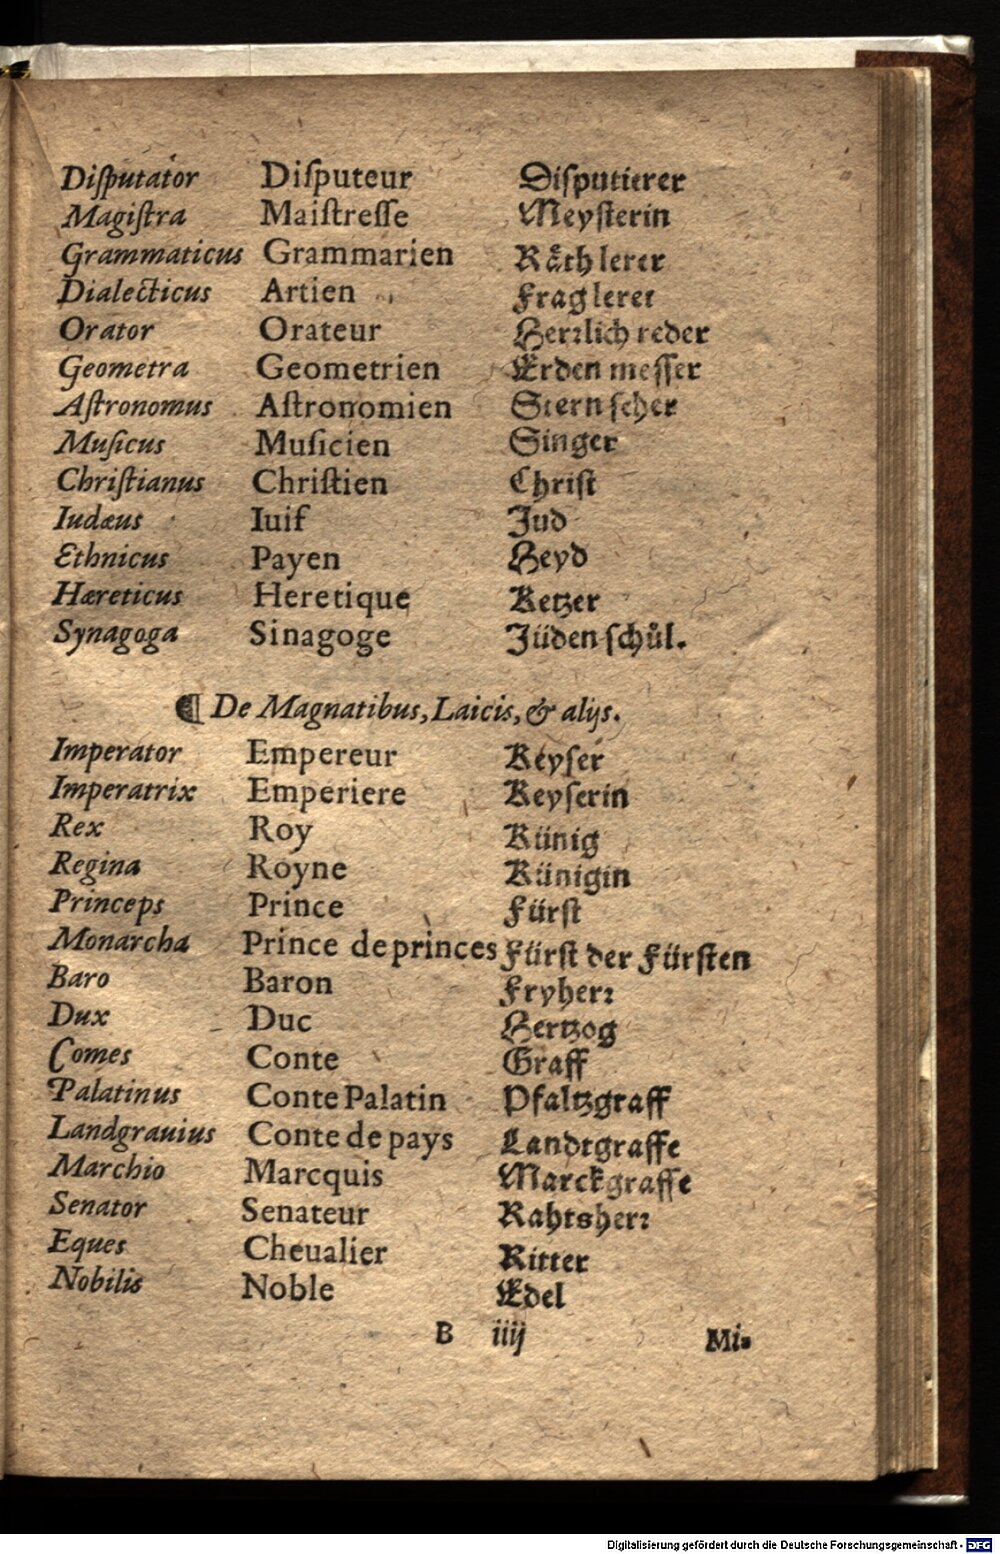 Diſputator Diſputeur Diſputierer
Magiſtra Maiſtreſſe Meyſterin
Grammaticus Grammarien Räthlerer
Dialecticus Artien Fraglerer
Orator Orateur Herꝛlich reder
Geometra Geometrien Erden meſſer
Aſtronomus Aſtronomien Stern ſeher
Muſicus Muſicien Singer
Chriſtianus Chriſtien Chriſt
Iudæus Iuif Jud
Ethnicus Payen Heyd
Hæreticus Heretique Ketzer
Synagoga Sinagoge Jüden ſchůl.
¶ De Magnatibus, Laicis, & alijs.
Imperator Empereur Keyſer
Imperatrix Emperiere Keyſerin
Rex Roy Künig
Regina Royne Künigin
Princeps Prince Fürſt
Monarcha Prince de princes Fürſt der Fürſten
Baro Baron Fryherꝛ
Dux Duc Hertzog
Comes Conte Graff
Palatinus Conte Palatin Pfaltzgraff
Landgrauius Conte de pays Landtgraffe
Marchio Marcquis Marckgraffe
Senator Senateur Rahtsherꝛ
Eques Cheualier Ritter
Nobilis Noble Edel
B iiij Mi⸗
Digitalisierung gefördert durch die Deutsche Forschungsgemeinschaft - DFG